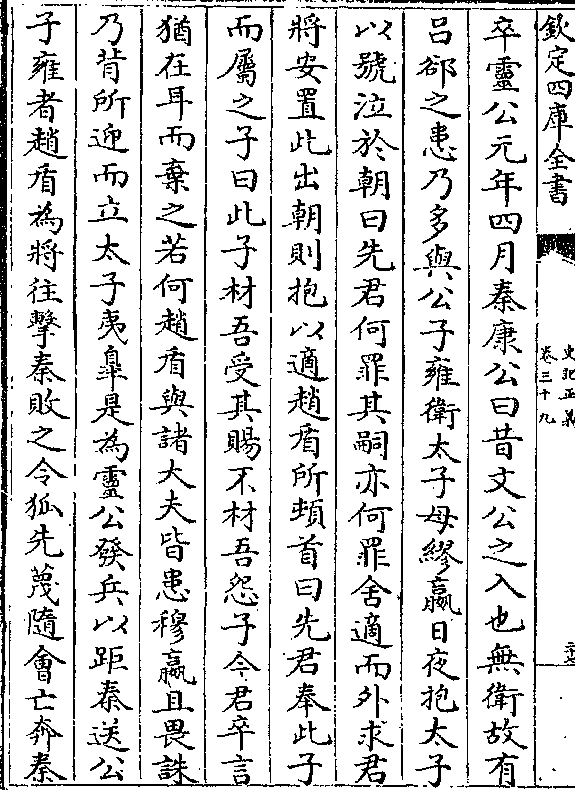 欽定四庫全書
史記正義
卷三十九
二十七
卒靈公元年四月秦康公曰昔文公之入也無衛故有
呂郤之患乃多與公子雍衛太子母繆嬴日夜抱太子
以號泣於朝曰先君何罪其嗣亦何罪舍適而外求君
將安置此出朝則抱以適趙盾所頓首曰先君奉此子
而屬之子曰此子材吾受其賜不材吾怨子今君卒言
猶在耳而棄之若何趙盾與諸大夫皆患穆嬴且畏誅
乃背所迎而立太子夷臯是為靈公發兵以距秦送公
子雍者趙盾為將往擊秦敗之令狐先蔑隨會亡奔秦